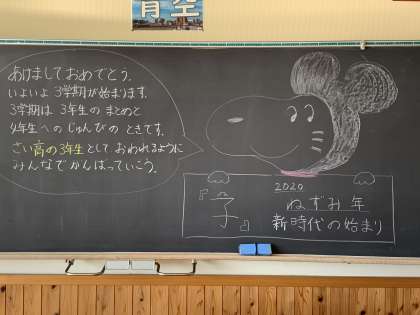 青空
あけましておめでとう。
いよいよ3学期が始まります。
3学期は3年生のまとめと
4年生へのじゅんびのときです。
さい高の3年生としておわれるように
みんなでがんばっていこう。
2020
『子』
ねずみ年
新時代の始まり